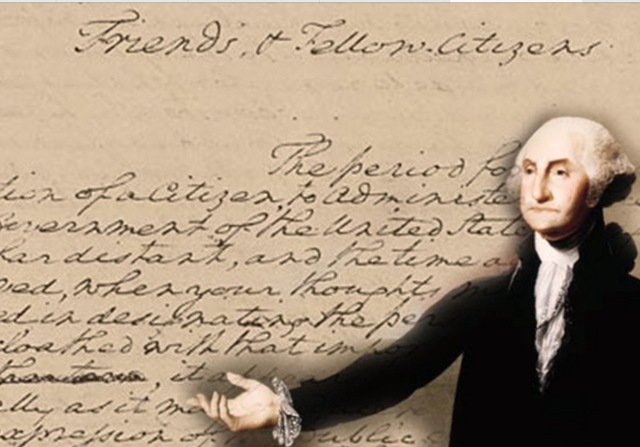 Friends, & Fellow-Citizens
The period fo
tion of a Citizen, to administe
overnment of the United State
far distant, and the time a
yed, when your thoughts m
ed in designating the per
cloathed with that impo
it
lly as it m
expression of public